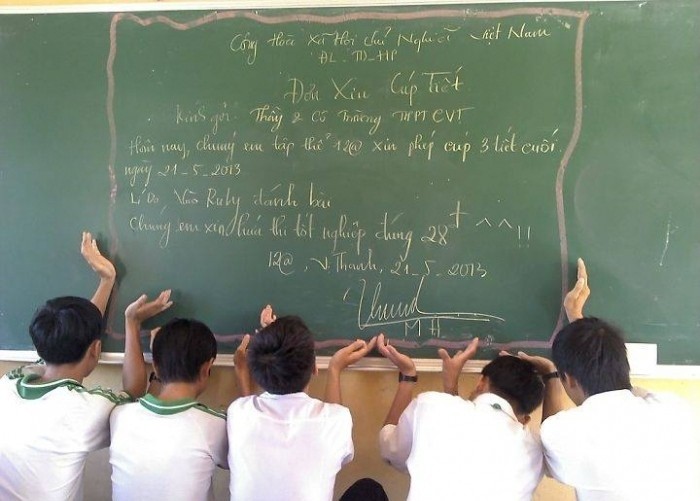 Cộng Hòa Xã Hội Chủ Nghĩa Việt Nam
ĐL - TD - HP
Đơn Xin Cúp Tiết
Kính gởi: Thầy & Cô Trường THPT CVT
Hôm nay, chúng em tập thể 12@ xin phép cúp 3 tiết cuối.
ngày 21-5-2013
Lí Do: Vào Ruby đánh bài
Chúng em xin hứa thi tốt nghiệp đúng 28+ ^^!!
12@, V. Thanh, 21-5-2013
MH